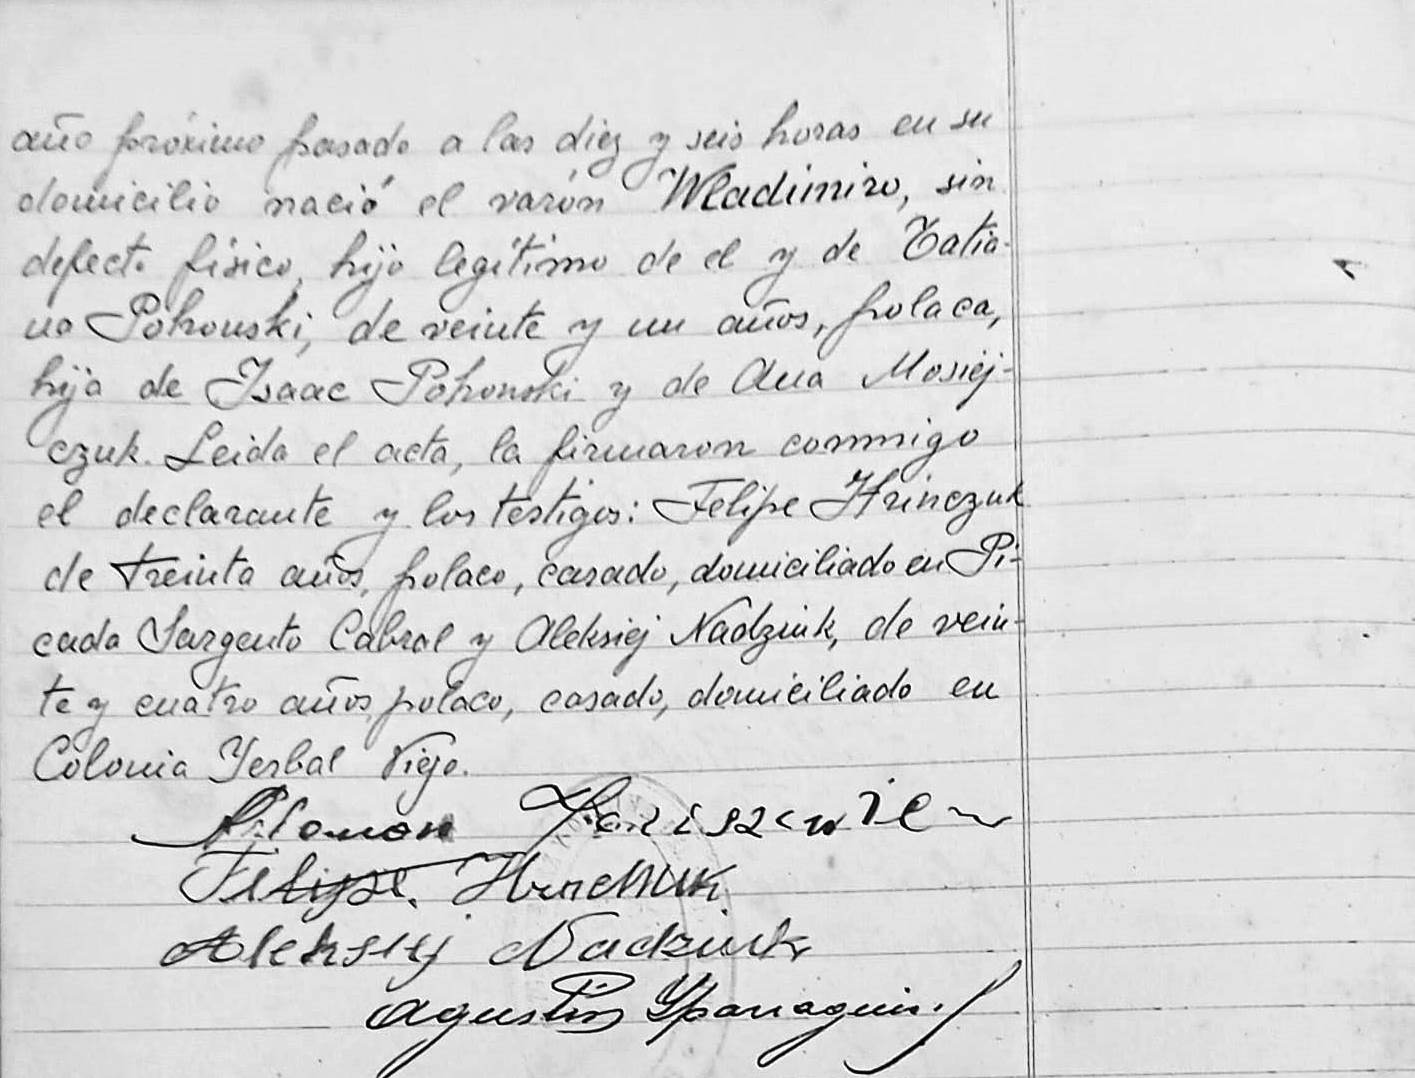 año próximo pasado a las diez y seis horas en su
domicilio nació el varón Wladimiro, sin
defecto físico, hijo legítimo de el y de Tatia-
na Pohonski, de veinte y un años, polaca,
hija de Isaac Pohonski y de Ana Mosiej-
czuk. Leida el acta, la firmaron conmigo
el declarante y los testigos: Felipe Hrinczuk
de treinta años, polaco, casado, domiciliado en Pi-
cada Sargento Cabral y Aleksiej Nadziuk, de vein-
te y cuatro años, polaco, casado, domiciliado en
Colonia Yerbal Viejo.
Filomon
Felipe.
Aleksiej Nadziuk
Agustin